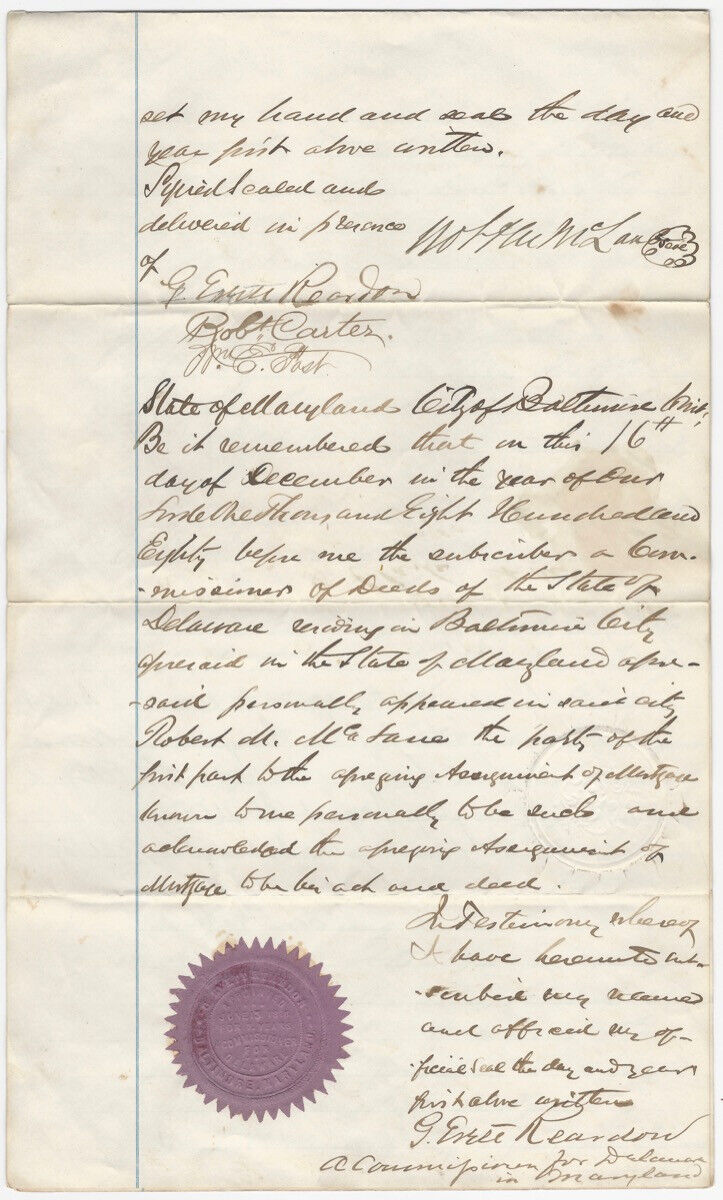 set my hand and seal the day and
year first above written.
Signed Sealed and
delivered in presence Robt M McLane Seal
of
G. Evett Reardon
Robt Carter.
Wm E. Post
State of Maryland City of Baltimore
Be it remembered that on this 16th
day of December in the year of Our
Lord One Thousand Eight Hundred and
Eighty before me the subscriber a Com-
-missioner of Deeds of the State of
Delaware residing in Baltimore City
aforesaid in the State of Maryland afore-
-said personally appeared in said city
Robert M. McLane the party of the
first part to the aforegoing Assignment of Mortgage
known to me personally to be such and
acknowledged the aforegoing Assignment of
Mortgage to be his act and deed.
In Testimony whereof
I have hereunto sub-
-scribed my name
and affixed my of-
-ficial seal the day and year
first above written
G. Evett Reardon
A Commissioner for Delaware
in Maryland